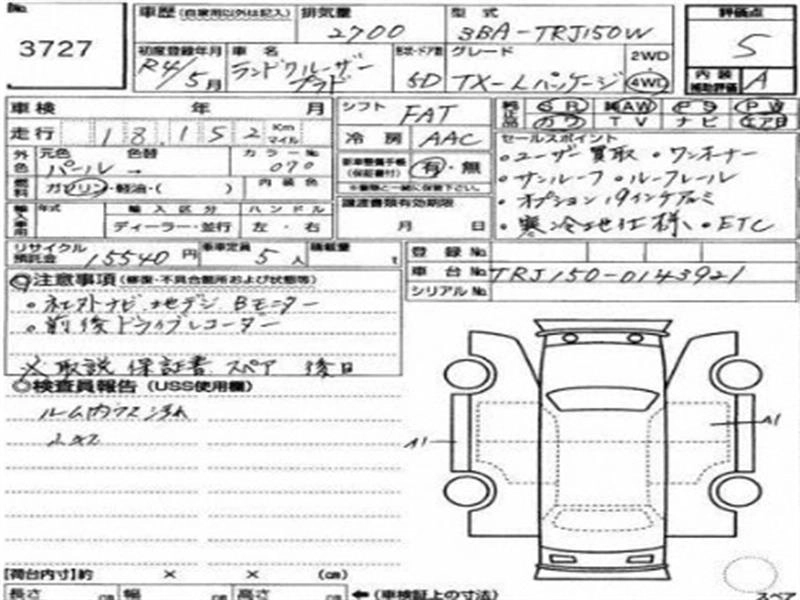 No.
3727
車歴(自家用以外は記入) 排気量 2700 型式 3BA-TRJ150W
初度登録年月 R4/5月 車名 ランドクルーザープラド 形状・ドア数 5D グレード TX-Lパッケージ 2WD 4WD
評価点 5
内装補助評価 A
車検 年 月
走行 18,152 Km マイル
外色 元色 パール → 色替 カラーNo. 070
燃料 ガソリン・軽油・( ) 内装色
輸入車用 年式 輸入区分 ハンドル
ディーラー・並行 左・右
シフト FAT
冷房 AAC
新車整備手帳(保証書付) 有・無
※書類と一緒に保管下さい。
譲渡書類有効期限
月 日
純正品 SR 純AW PS PW
カワ TV ナビ エアB
セールスポイント
・ユーザー買取 ・ワンオーナー
・サンルーフ・ルーフレール
・オプション19インチアルミ
・寒冷地仕様 ・ETC
リサイクル預託金 15540円 乗車定員 5人 積載量 t
登録No.
車台No. TRJ150-0143921
シリアルNo.
注意事項(修復・不具合箇所および状態等)
・社外ナビ 地デジ Bモニター
・前後ドライブレコーダー
※取説 保証書 スペア 後日
検査員報告(USS使用欄)
ルーム内
A1
A1
【荷台内寸】約 × × (cm)
長さ cm 幅 cm 高さ cm ←(車検証上の寸法)
スペア